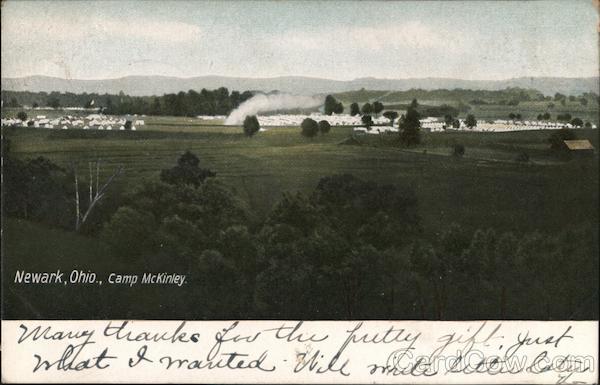 Newark, Ohio., Camp McKinley.
Many thanks for the pretty gift, just
what I wanted. Will write later.
CardCow.com